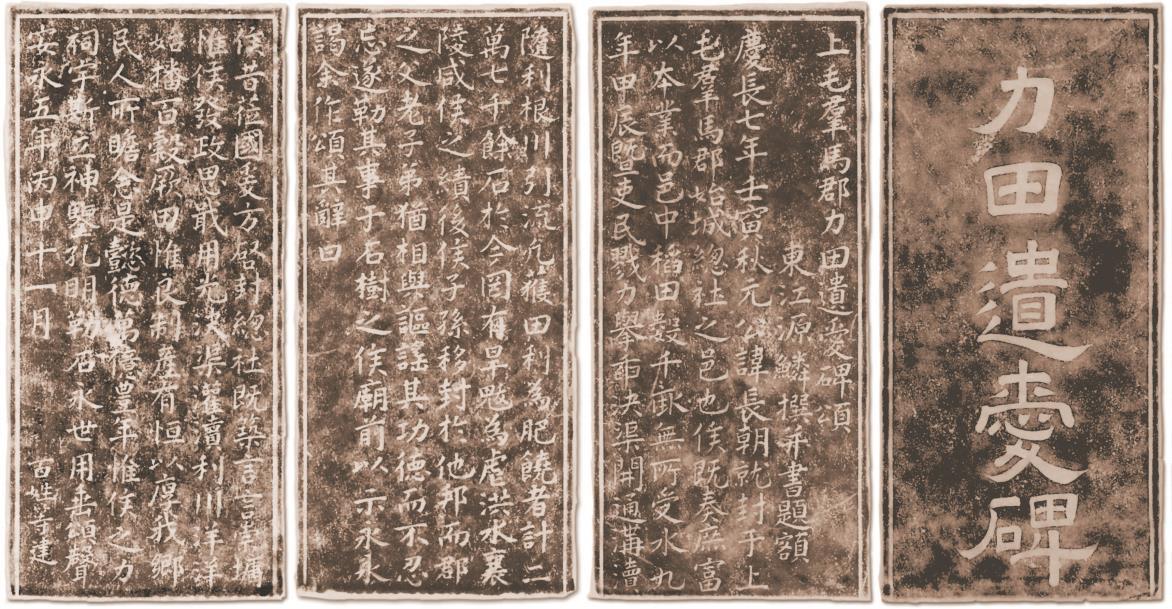 力田遺愛碑
上毛羣馬郡力田遺愛碑頌
東江源鱗撰并書題額
慶長七年壬寅秋元公諱長朝就封于上
毛羣馬郡始城總社之邑也侯既奏庶富
以本業而邑中稻田數千畝無所受水九
年甲辰暨吏民戮力舉臿決渠開通溝瀆
隨利根川引流凡獲田利為肥饒者計二
萬七千餘石於今罔有旱魃為虐洪水襄
陵咸侯之績後侯子孫移封於他邦而郡
之父老子弟猶相與謳謠其功德而不忍
忘遂勒其事于石樹之侯廟前以示永永
謁余作頌其辭曰
侯昔蒞國爰方啓封總社既築言言崇墉
惟侯發政思戢用光浚渠灌瀆利川洋洋
始播百穀厥田惟良制產有恒以厚我鄉
民人所瞻是懿德萬億豐年惟侯之力
祠宇斯立神鑒孔明勒石永世用垂頌聲
安永五年丙申十一月 百姓等建